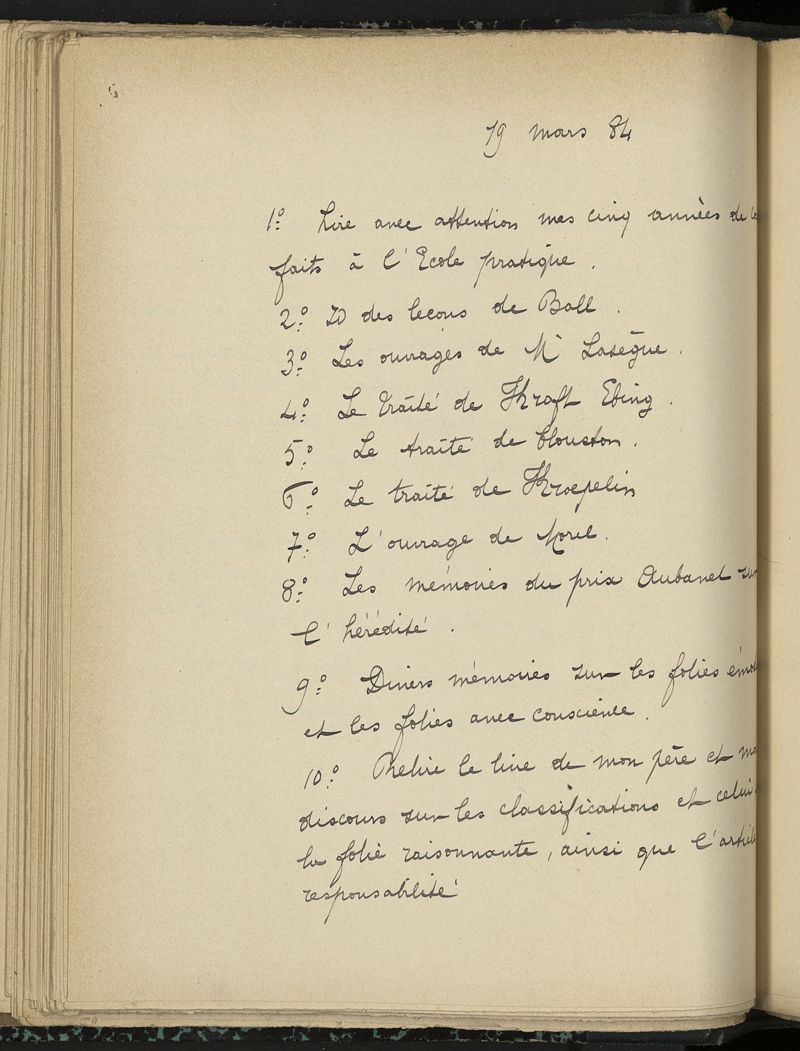 19 mars 84
1º Lire avec attention mes cinq années de
faits à l'École pratique.
2º ID des leçons de Ball.
3º Les ouvrages de Mr Lasègue.
4º Le traité de Kraft Ebing.
5º Le traité de Clouston.
6º Le traité de Kraepelin
7º L'ouvrage de Morel.
8º Les mémoires du prix Aubanel sur
l'hérédité.
9º Divers mémoires sur les folies
et les folies avec conscience.
10º Relire le livre de mon père et
discours sur les classifications et celui
la folie raisonnante, ainsi que l'article
responsabilité